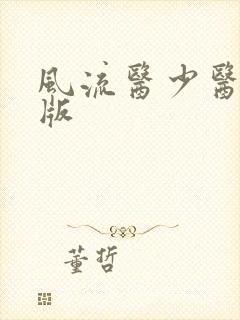 風流醫少醫
版
董哲